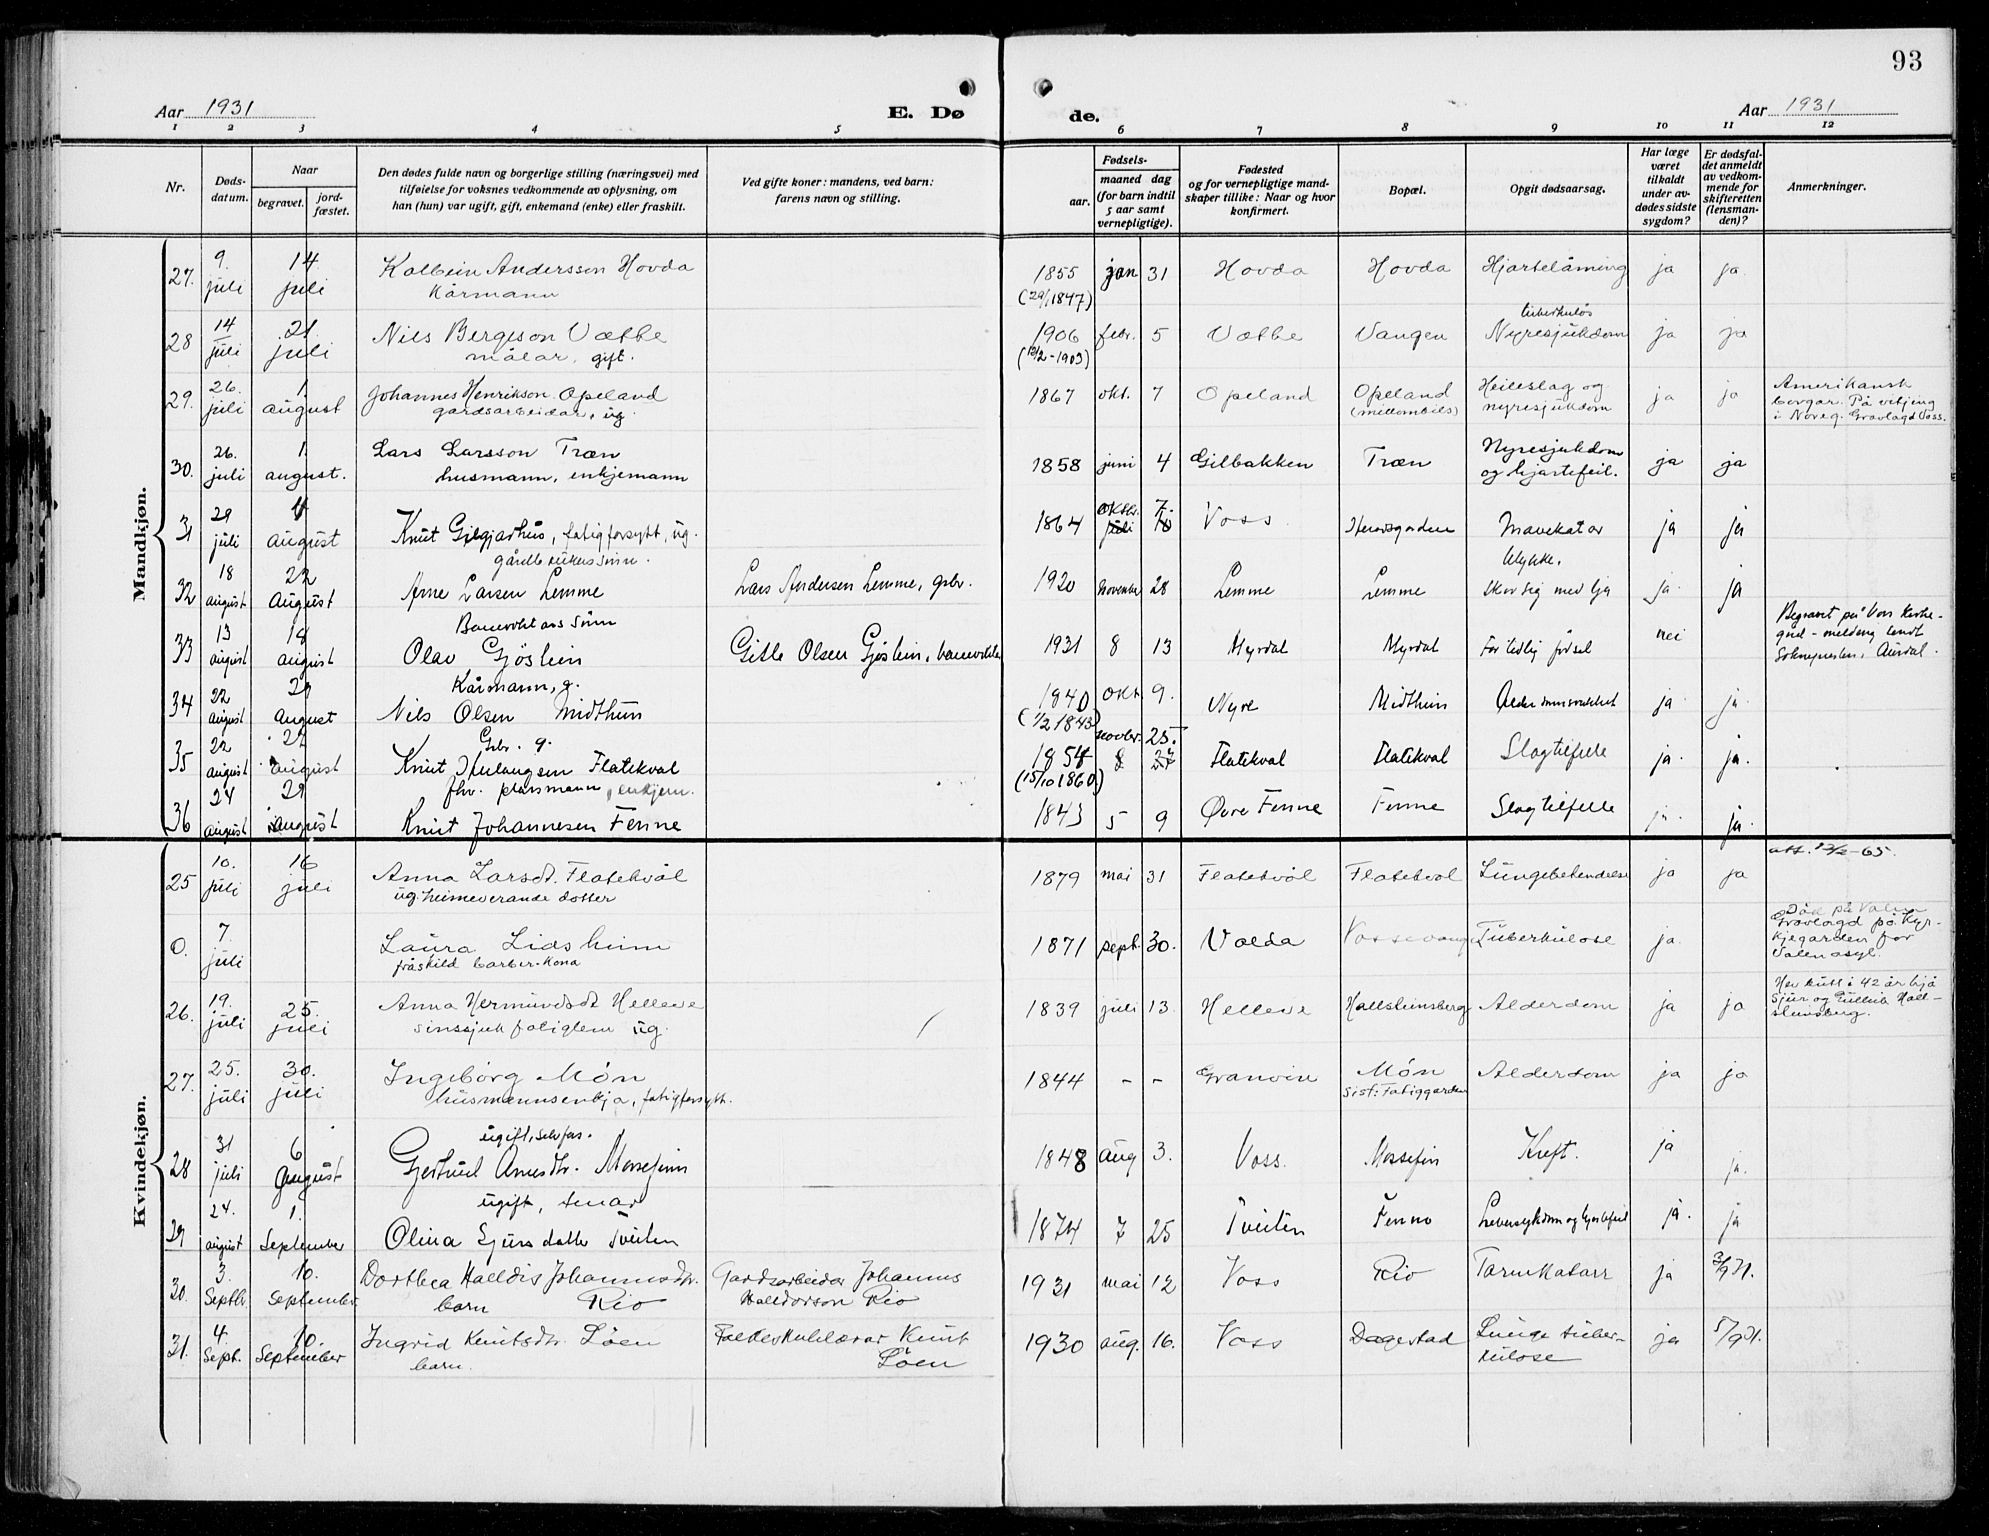 93
Aar 1931
E. Dø
de.
Aar 1931
1 2 3 4 5 6 7 8 9 10 11 12
Nr.
Døds-
datum.
Naar
begravet.
jord-
fæstet.
Den dødes fulde navn og borgerlige stilling (næringsvei) med
tilføielse for voksnes vedkommende av oplysning, om
han (hun) var ugift, gift, enkemand (enke) eller fraskilt.
Ved gifte koner: mandens, ved barn:
farens navn og stilling.
Fødsels-
aar.
maaned dag
(for barn indtil
5 aar samt
vernepligtige).
Fødested
og for vernepligtige mand-
skaper tillike: Naar og hvor
konfirmert.
Bopæl.
Opgit dødsaarsag.
Har læge
været
tilkaldt
under av-
dødes sidste
sygdom?
Er dødsfal-
det anmeldt
av vedkom-
mende for
skifteretten
(lensman-
den)?
Anmerkninger.
Mandkjøn.
27. 9. juli 14 juli Kolbein Andersson Hovda 1855 jan 31 Hovda Hovda Hjartelåming ja ja
Kårmann (29/1 1847)
28 14 juli 21 juli Nils Bergeson Væthe 1906 febr. 5 Væthe Vangen tuberkuløs Nyresjukdom ja ja
målar, gift. (12/2-1903)
29. 26. juli 1. august Johannes Henrikson Opeland 1867 okt. 7 Opeland Opeland Heileslag og ja ja Amerikansk
gardsarbeidar, ug. (millombils) nyresjukdom borgar. På vitjing
i Noreg. Gravlagd Voss.
30. 26. juli 1. august. Lars Larsson Træn 1858 juni 4 Gilbakken Træn Nyresjukdom ja ja
husmann, enkjemann og hjartefeil.
31 29 juli august Knut Gjelgjarhus, fatigforsytt, ug. 1864 oktbr. 7. Voss Mavekatar ja ja
gårdbrukers sønn. Ulykke.
32 18 august 22 august Arne Larsen Lemme Lars Andersen Lemme, gbr. 1920 November 28 Lemme Lemme Skar sig med ljå ja ja
Banevokters sønn
33 13 august 18 august Olav Gjøstein Gitle Olsen Gjøstein, banevokter 1931 8 13 Myrdal Myrdal For tidlig fødsel nei Begravet på Voss kirke-
gård - melding sendt
Soknepresten i Aurdal.
Kårmann, g.
34 22 august 29 august Nils Olsen Midthun 1840 okt 9. Nyre Midthun Alderdomssvakhet ja ja
(1/2 1843)
Gbr. g. novbr. 25.
35 22 august 29 august Knut Flatekval 1854 Flatekval Flatekval Slagtilfelle ja ja
(15/10 1860)
fhv. plassmann, enkjem.
36 24 august 29 august Knut Johannesen Fenne 1843 5 9 Øvre Fenne Fenne Slagtilfelle ja ja
Kvindekjøn.
att. 23/2-65.
25 10. juli 16 juli Anna Larsdt. Flatekvål 1879 mai 31 Flatekvål Flatekvål Lungebetendelse ja ja
ug. heimeverande dotter
0. 7. juli Laura Lidsheim 1871 sept. 30. Volda Vossevang Tuberkulose ja Død på Valen
fråskild barber-kona Gravlagd på kyr-
kjegarden for
Valen asyl.
26. 19. juli 25. juli Anna Hermundsdt Helleve 1839 juli 13. Helleve Hallsteinsberg Alderdom ja ja Hev butt i 42 år hjå
sinssjuk fatiglem ug. Sjur og Gullik Hall-
steinsberg.
27. 25. juli 30. juli Ingebörg Møn 1844 - - Granvin Møn Alderdom ja ja
husmannsenkja, fatigforsytt. Sist: Fatiggarden
ugift,
28 31 juli 6 August Gjertrud Arnesdtr. Mossefinn 1848 aug 3. Voss. Mossefin Kreft. ja ja.
ugift, tenar
29 24. august 1. September Olina Sjursdatter Tveiten 1874 7 25 Tveiten Fenno Leversykdom og hjertefeil ja. ja
30. 3. Septbr. 10. September Dorthea Halldis Johannesdtr. Gardsarbeidar Johannes 1931 mai 12 Voss Rio Tarmkatarr ja 3/9 31.
barn Rio Halldorson Rio
31. 4. Sept. 10. September Ingrid Knutsdtr. Løen Folkeskulelærar Knut 1930 aug. 16. Voss Dagestad Lunge tuber- ja 5/9 31.
barn. Løen kulose